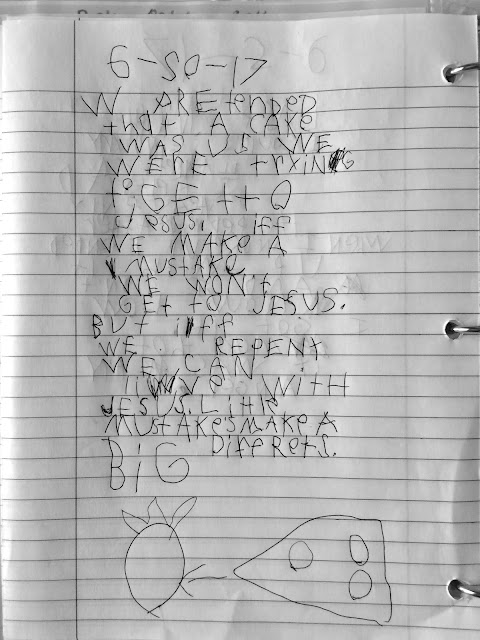 6-SO-17
W PREtendED
that A CAKE
WAS US WE
WERE trxinG
tiGE ttO
Jesus. iff
WE MAKE A
MUstAKE
WE WON't
GEt tO JESUS.
But iff
WE REPENt
WE CAN
liWVe WitH
JESUS. Litle
MUStAkes MAKE A
BiG Differets.